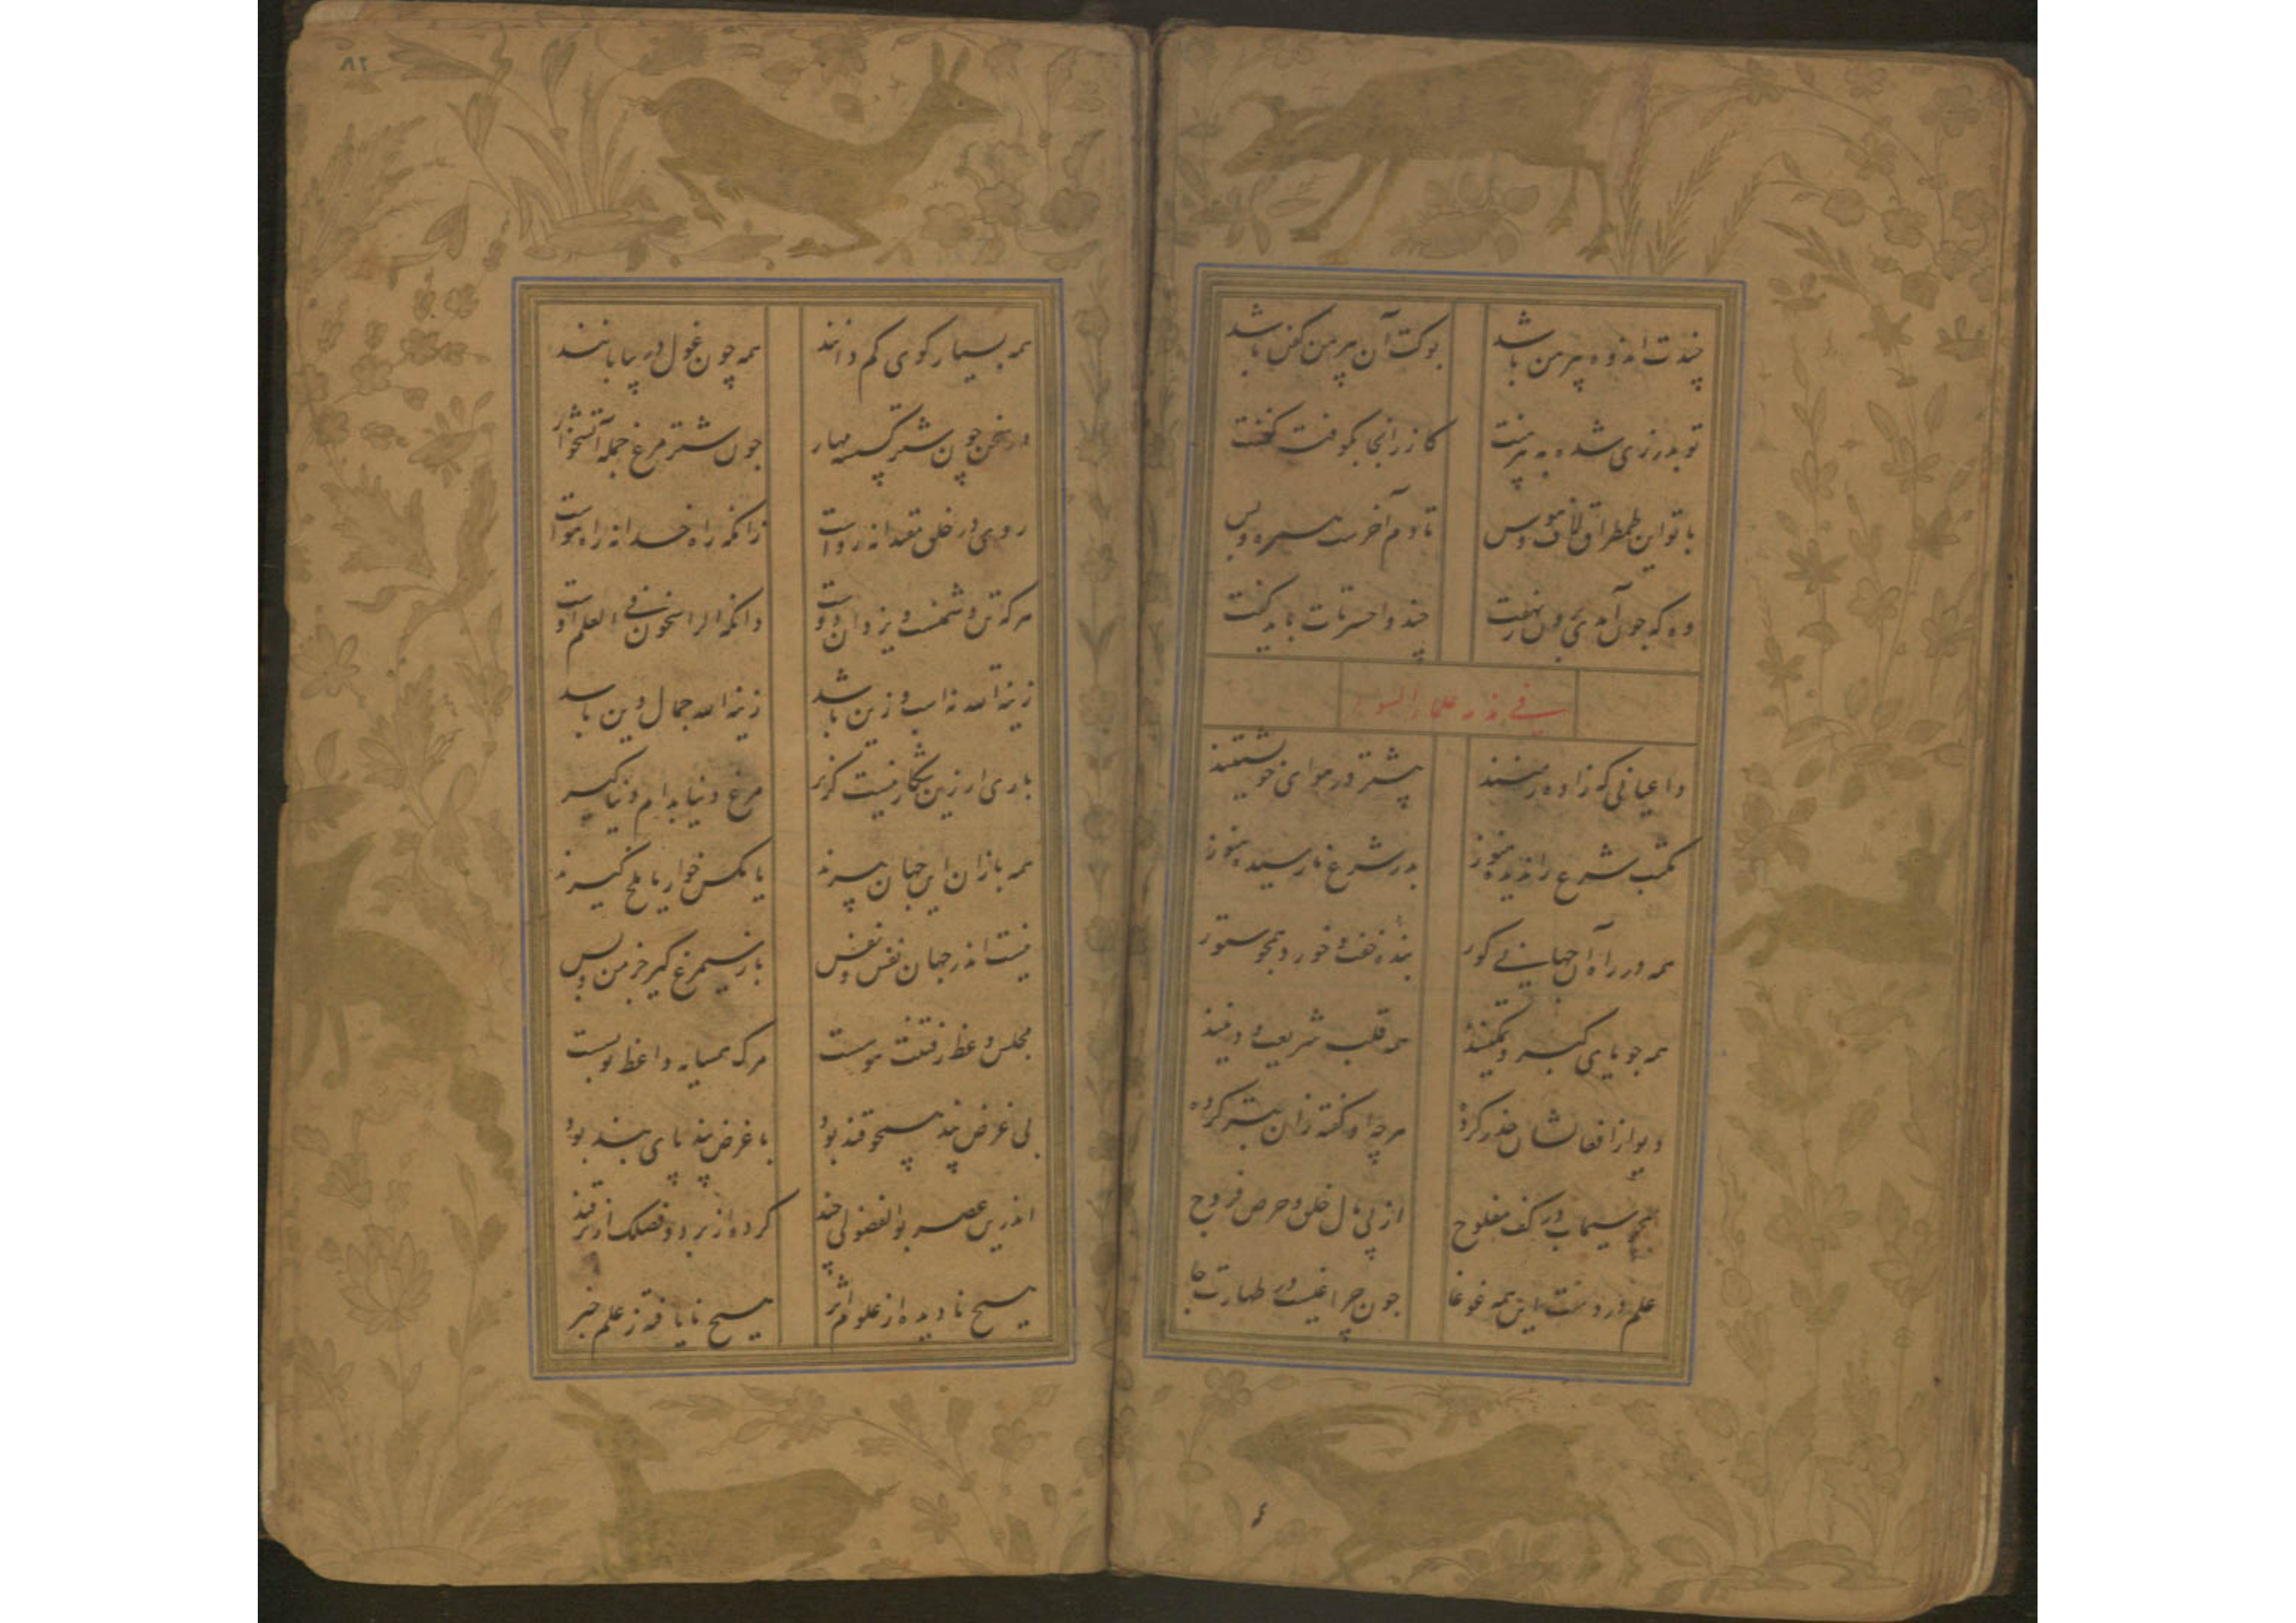 چندت اندوه پیرهن باشد بوکت آن پیرهن کفن باشد
تو بدرزی شده به پیرهنت گازر آنجا بکوفت کفنت
با تو این طمطراق و لاف و هوس تا دم آخرست همره و بس
وه که چون آمدی برون ز نهفت چند واحسرتات باید گفت
فی علماء السو
داعیانی که زاده زمنند بیشتر در هوای خویشتنند
بشب شرع را ندیده هنوز بدر شرع نارسیده هنوز
همه در راه آن جهانی کور بنده خفت و خورد و همچو ستور
همه جویای کبر و تمکینند همه قلب شریعت و دینند
دیو از افعالشان حذر کرده هرچه او گفته زان بتر کرده
همچو سیماب در کف مفلوج از پی مال خلق و حرص فروج
علم در دست این همه غوغا چون چراغیست در طهارت جا
۸۲
همه بسیار گوی کم دانند همه چون غول در بیابانند
در سخن چون شتر گسسته مهار چون شتر مرغ جمله آتشخوار
روی در خلق مقتدا نه رواست زانکه راه خدا نه راه هواست
هرکه تن دشمنست و یزدان دوست داند الراسخون فی العلم اوست
زینة الله نه اسب و زین باشد زینة الله جمال دین باشد
باری ار زین شکار نیست گزیر مرغ دنیا بدام دنیا گیر
همه بازان این جهان پیرند یا مگس خوار یا ملخ گیرند
نیست اندر جهان نفس و نفس باز سیمرغ گیر جز من و بس
مجلس وعظ رفتنت هوسست مرگ همسایه واعظ تو بسست
بی غرض پند همچو قند بود با غرض پند پای بند بود
اندرین عصر بوالفضولی چند کرده از بر دو فصلک از ترفند
هیچ نادیده از علوم اثر هیچ نایافته ز علم خبر